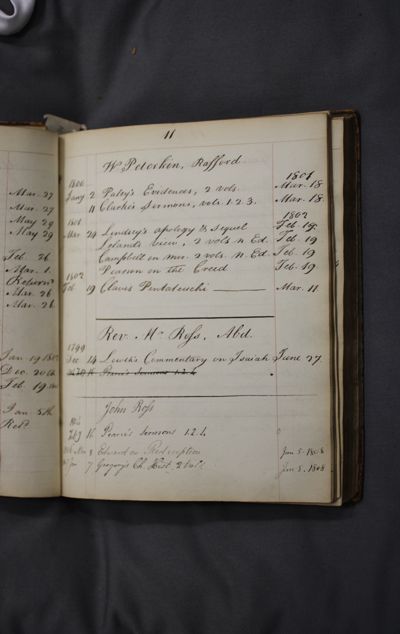 Mar. 27
Mar. 27
May 29
May 29
Feb. 26
Mar. 1.
Mar. 26
Mar. 26
Jan. 19
Dec. 20th
Feb. 19
Jan. 5th
11
Wm Peterkin, Rafford
1800. 1801
Jany 2 Paley's Evidences, 2 vols. Mar. 18
11 Clarke's Sermons, vols. 1.2.3. Mar. 18.
1801 1802
Mar. 24 Lindsay's apology & Sequel Feb. 19.
Leland's View, 2 vols. N. Ed. Feb. 19
Campbell on mir. 2 vols. N. Ed. Feb. 19
1802 Pearson on the Creed Feb. 19
Feb. 19 Clavis Pentateuchi Mar. 11
Rev. Mr Ross, Abd.
1799
Dec. 14 Lowth's Commentary on Isaiah June 27
Sermons 1.2.4
John Ross
16 Sermons 1.2.4.
8 Edwards on Redemption Jan 5. 1808
7 Gregory's Ch. Hist. 2 Vols. Jan 5. 1808